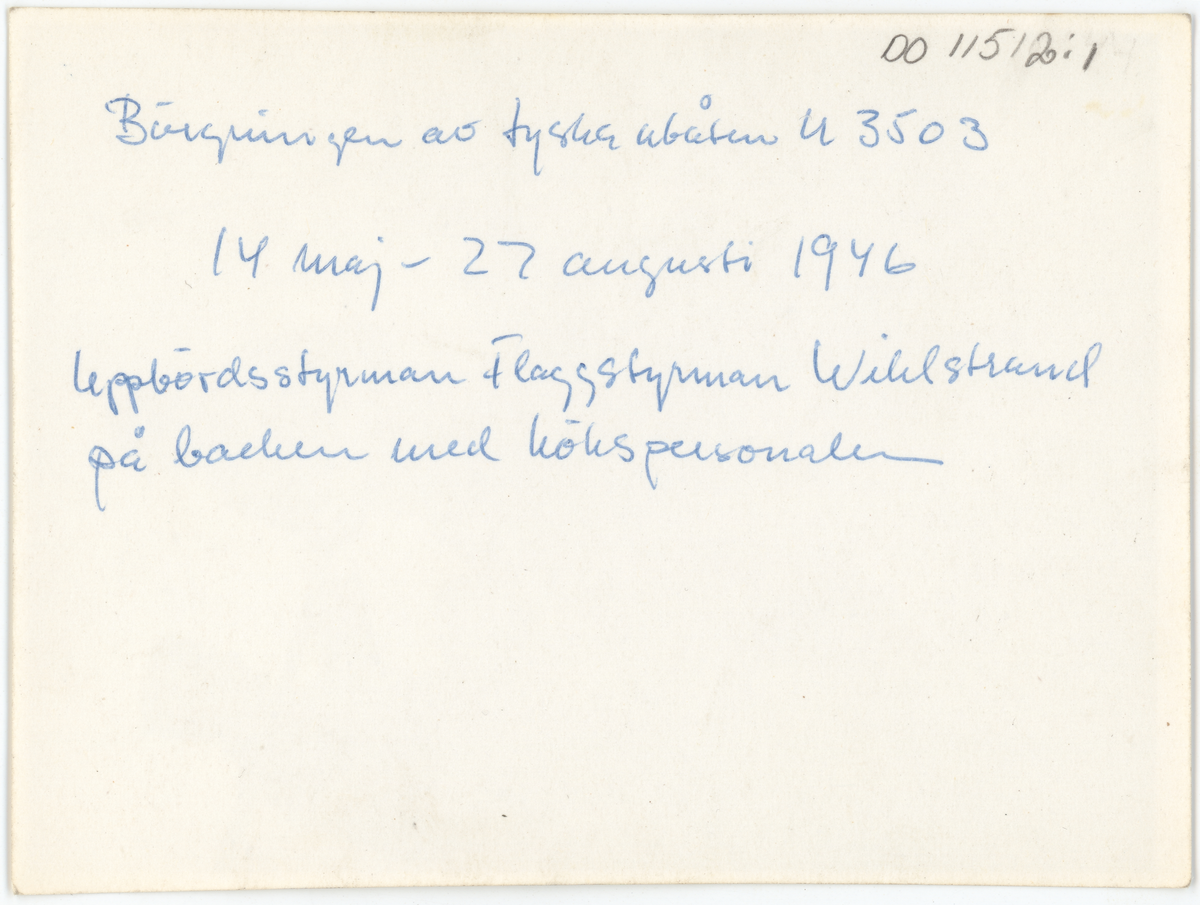 DO 11512:1
Bärgningen av tyska ubåten U 3503
14 maj - 27 augusti 1946
Uppbördsstyrman Flaggstyrman Wihlstrand
på backen med kökspersonalen